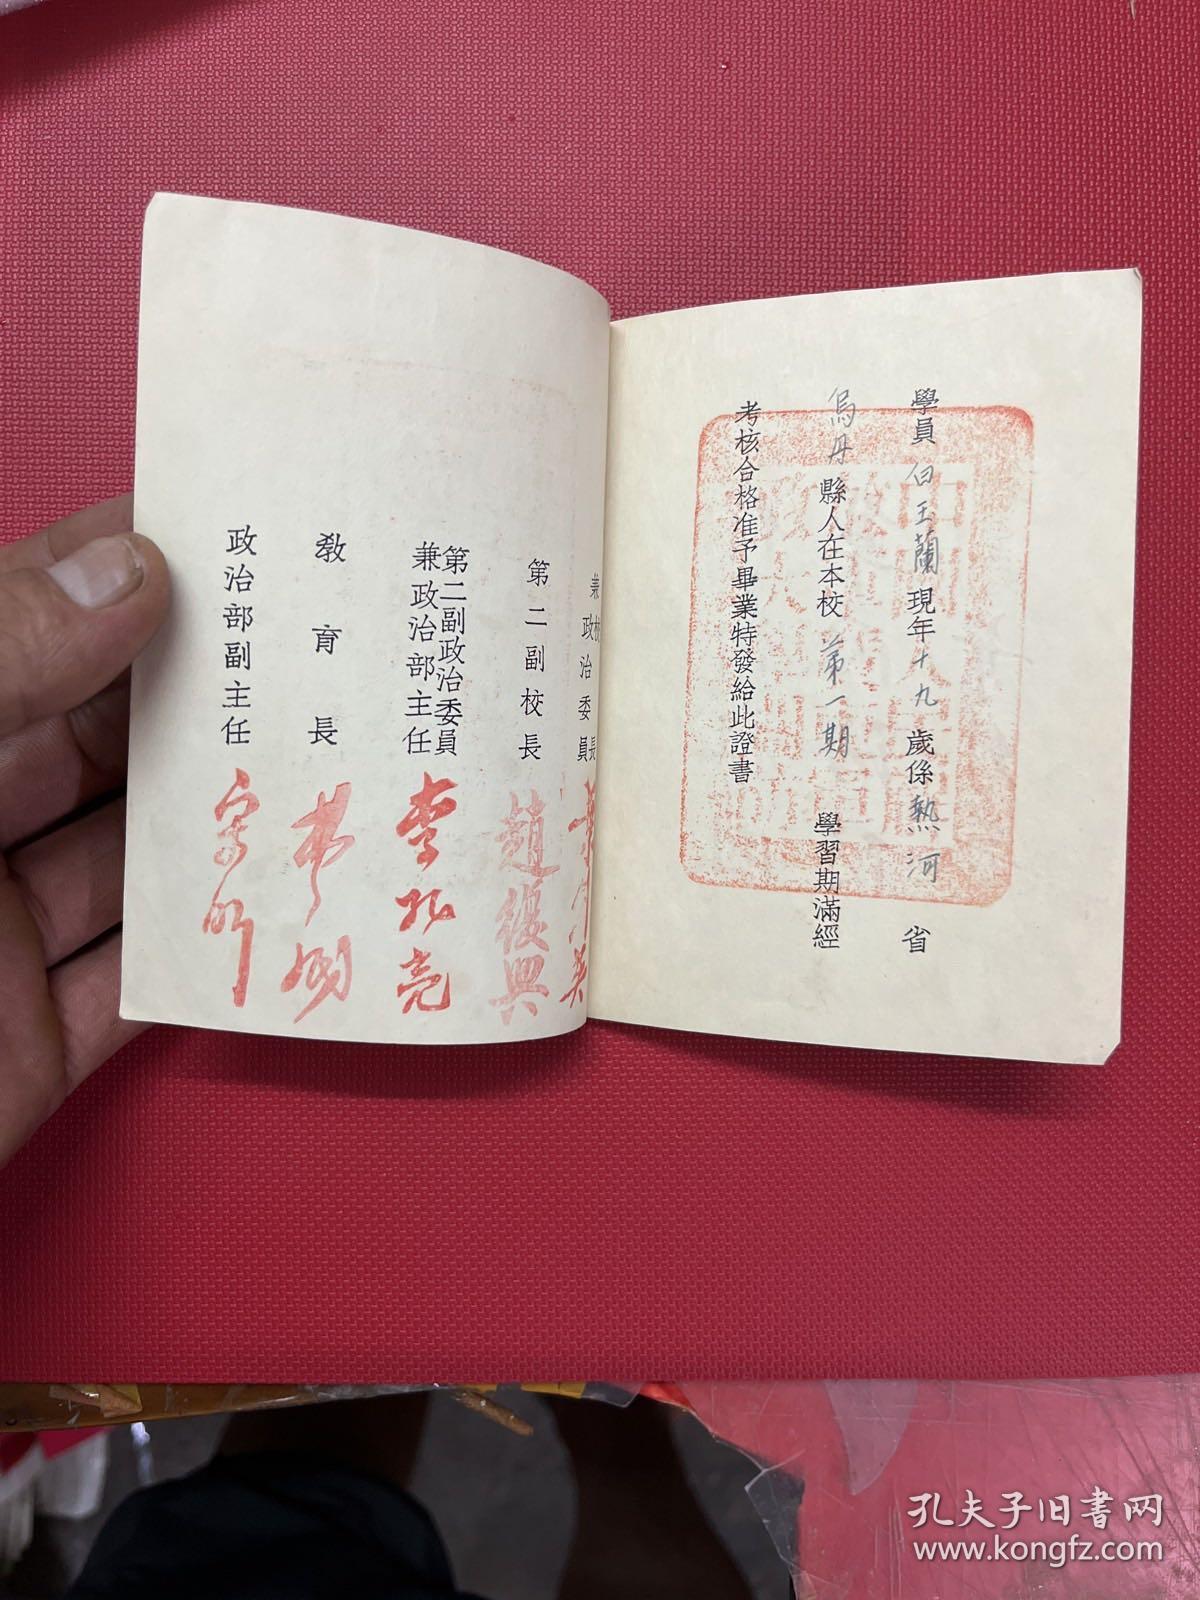 學員 白玉蘭 現年 十九 歲係 熱河 省
烏丹 縣人在本校 第一期 學習期滿經
考核合格准予畢業特發給此證書
兼政治委員
第二副校長 趙復興
第二副政治委員
兼政治部主任 李孔亮
教育長
政治部副主任
孔夫子旧书网
www.kongfz.com